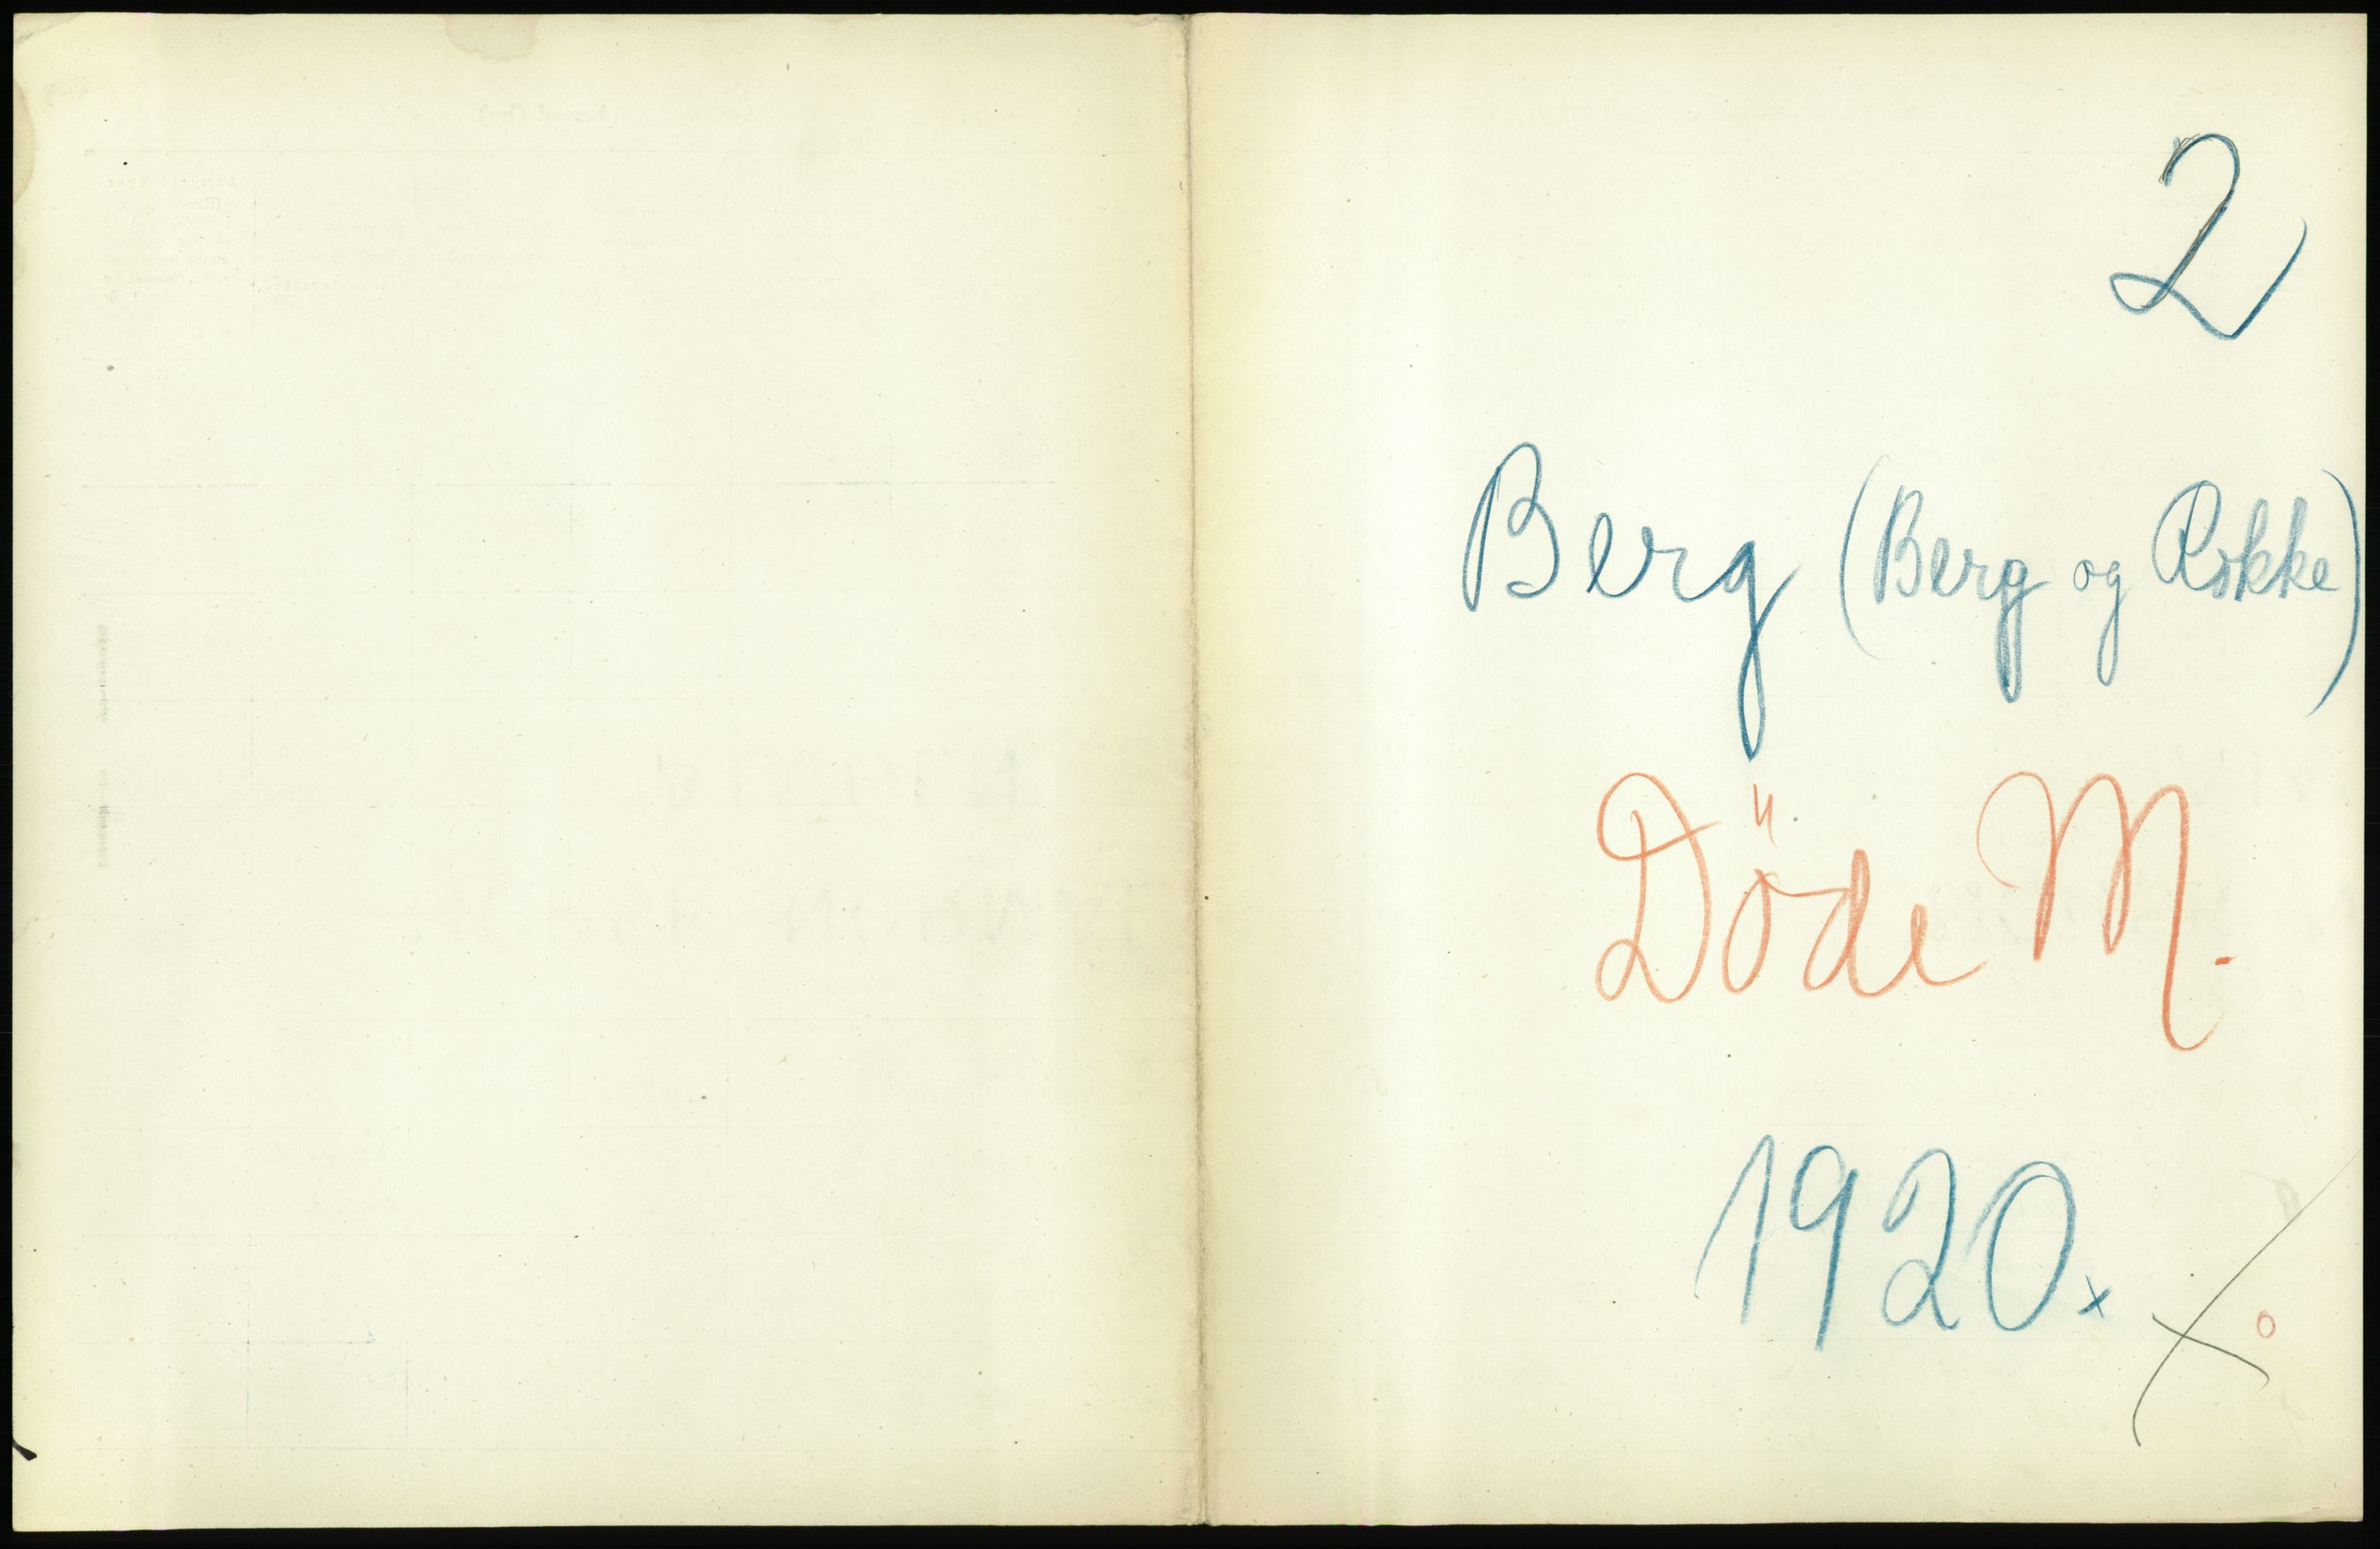 2
Berg (Berg og Rokke)
Döde M.
1920.